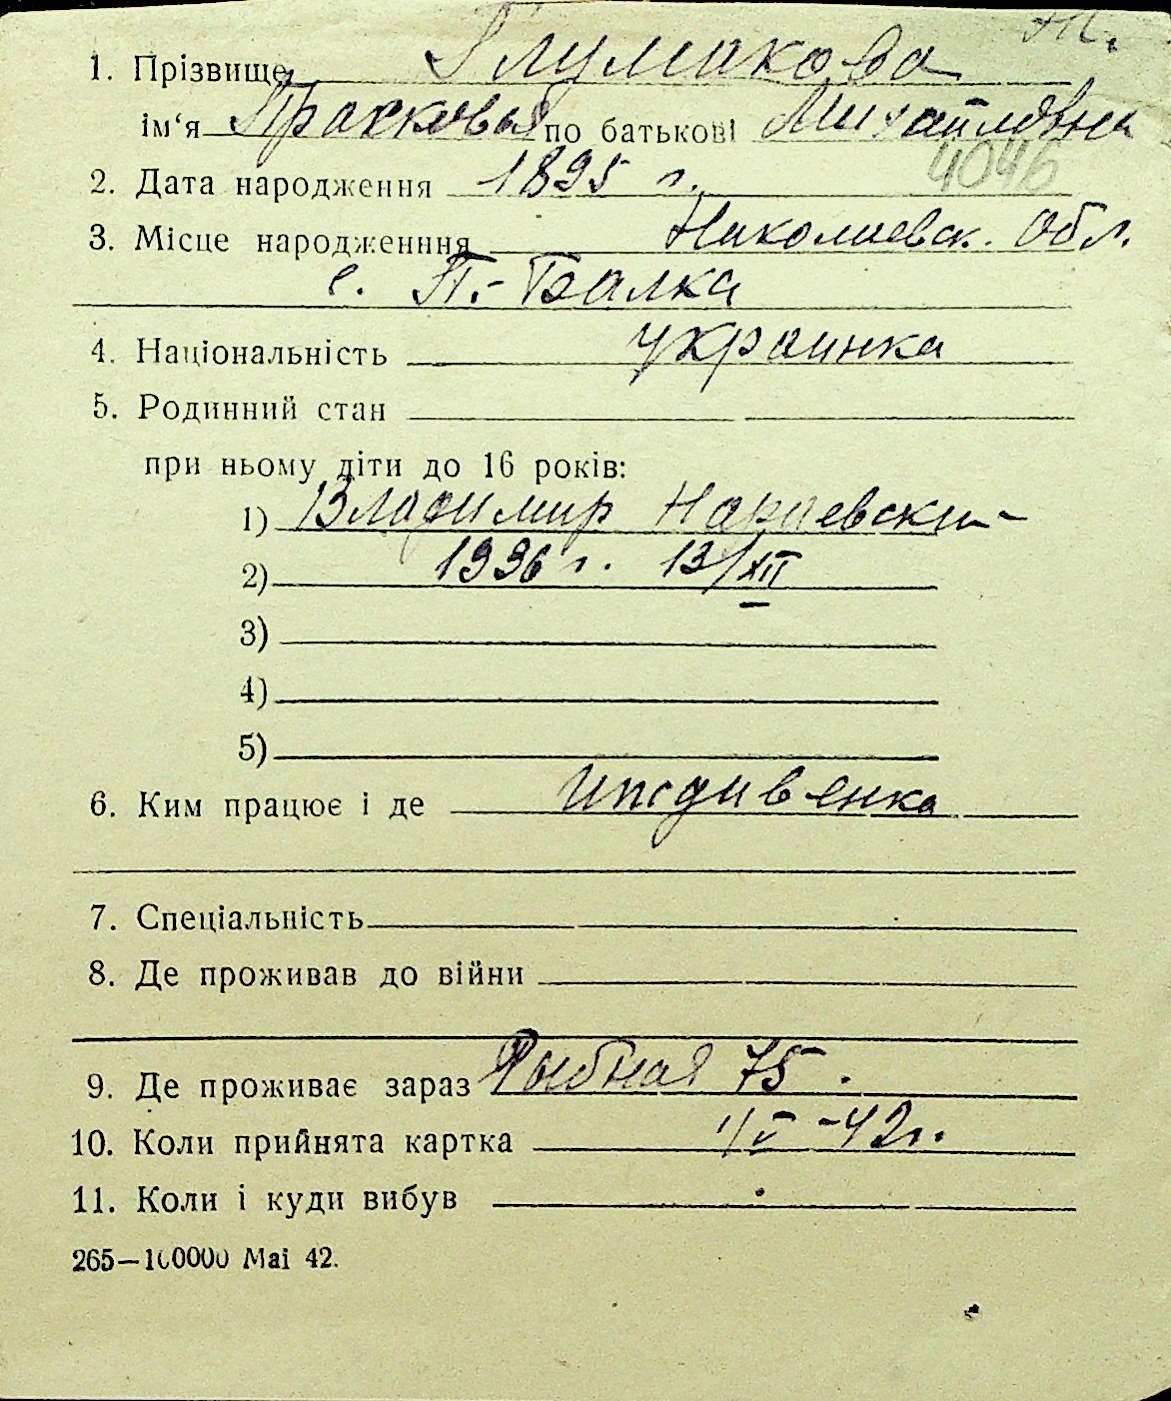 1. Прізвище Глумакова
ім‘я Прасковья по батькові Михайловна
4046
2. Дата народження 1895 г.
3. Місце народженння Николаевск. обл.
с. П.-Балка
4. Національність украинка
5. Родинний стан
при ньому діти до 16 років:
1) Владимир
2) 1936 г. 13/XII
3)
4)
5)
6. Ким працює і де иждивенка
7. Спеціальність
8. Де проживав до війни
9. Де проживає зараз Рыбная 75.
10. Коли прийнята картка 1/V -42г.
11. Коли і куди вибув
265—100000 Маі 42.